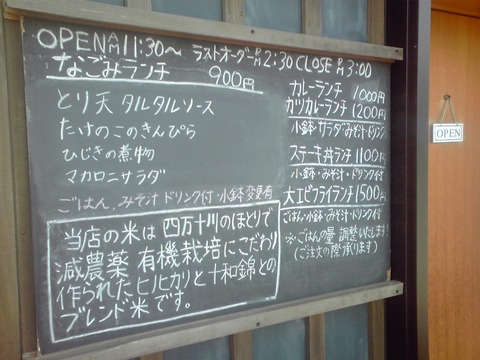 OPEN AM11:30~ ラストオーダーPM2:30 CLOSE PM3:00
なごみランチ 900円
とり天 タルタルソース
たけのこのきんぴら
ひじきの煮物
マカロニサラダ
ごはん、みそ汁 ドリンク付・小鉢変更有
当店の米は 四万十川のほとりで
減農薬 有機栽培にこだわり
作られたヒノヒカリと十和錦との
ブレンド米です。
カレーランチ 1000円
カツカレーランチ 1200円
小鉢 サラダみそ汁・ドリンク
ステーキ丼ランチ 1100円
小鉢・みそ汁・ドリンク付
大エビフライランチ 1500円
ごはん・小鉢・みそ汁・ドリンク付
※ごはんの量 調整いたします!
(ご注文の際承ります)
OPEN